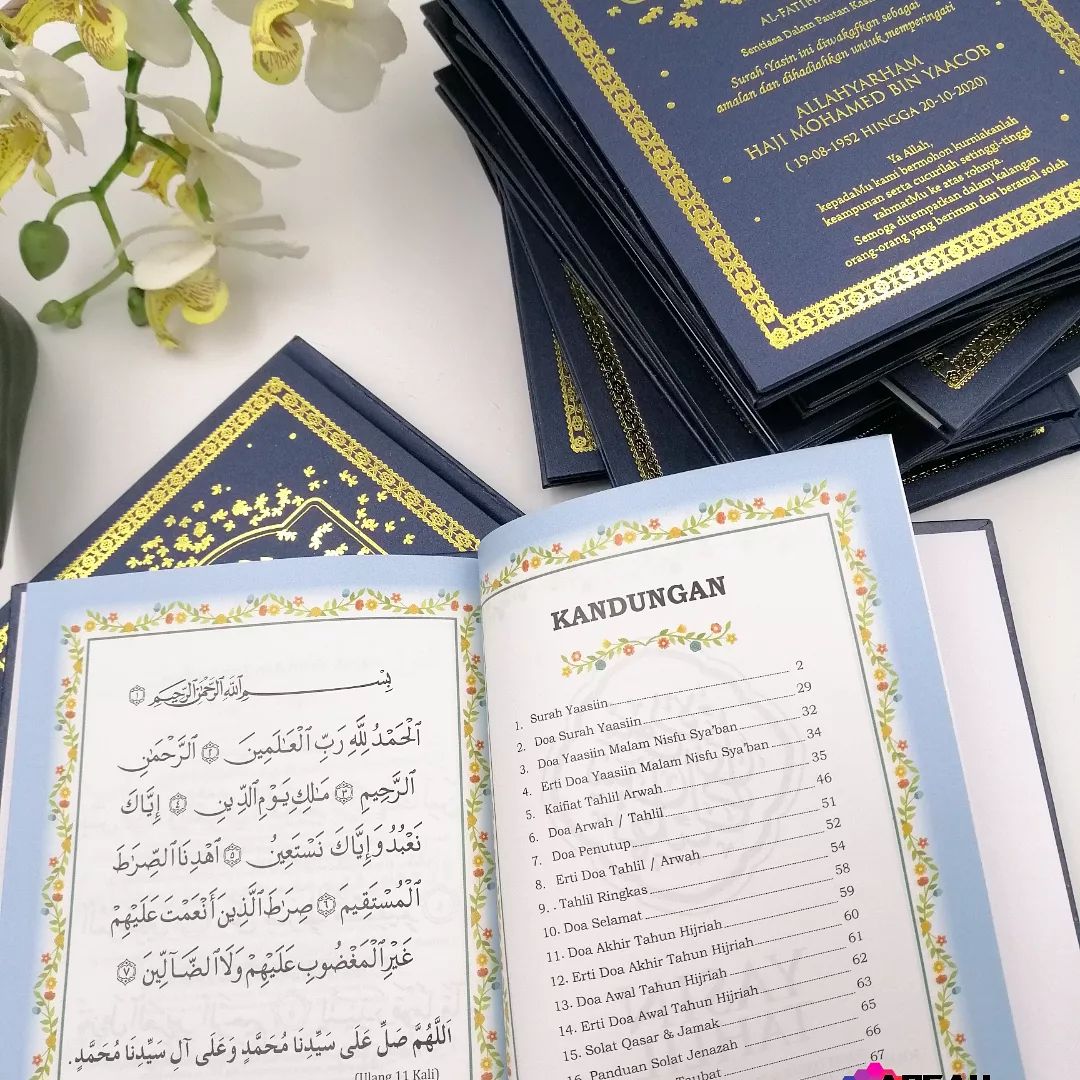 AL-FATIHA
Sentiasa Dalam Pautan Kasih
Surah Yasin ini diwakafkan sebagai
amalan dan dihadiahkan untuk memperingati
ALLAHYARHAM
HAJI MOHAMED BIN YAACOB
( 19-08-1952 HINGGA 20-10-2020)
Ya Allah,
kepadaMu kami bermohon kurniakanlah
keampunan serta cucurilah setinggi-tinggi
rahmatMu ke atas rohnya.
Semoga ditempatkan dalam kalangan
orang-orang yang beriman dan beramal soleh
بِسْمِ ٱللَّهِ ٱلرَّحْمَٰنِ ٱلرَّحِيمِ ١
ٱلْحَمْدُ لِلَّهِ رَبِّ ٱلْعَالَمِينَ ٢ ٱلرَّحْمَٰنِ
ٱلرَّحِيمِ ٣ مَالِكِ يَوْمِ ٱلدِّينِ ٤ إِيَّاكَ
نَعْبُدُ وَإِيَّاكَ نَسْتَعِينُ ٥ ٱهْدِنَا ٱلصِّرَاطَ
ٱلْمُسْتَقِيمَ ٦ صِرَاطَ ٱلَّذِينَ أَنْعَمْتَ عَلَيْهِمْ
غَيْرِ ٱلْمَغْضُوبِ عَلَيْهِمْ وَلَا ٱلضَّآلِّينَ ٧
اَللَّهُمَّ صَلِّ عَلَى سَيِّدِنَا مُحَمَّدٍ وَعَلَى آلِ سَيِّدِنَا مُحَمَّدٍ.
(Ulang 11 Kali)
KANDUNGAN
1. Surah Yaasiin 2
2. Doa Surah Yaasiin 29
3. Doa Yaasiin Malam Nisfu Sya'ban 32
4. Erti Doa Yaasiin Malam Nisfu Sya'ban 34
5. Kaifiat Tahlil Arwah 35
6. Doa Arwah / Tahlil 46
7. Doa Penutup 51
8. Erti Doa Tahlil / Arwah 52
9. . Tahlil Ringkas 54
10. Doa Selamat 58
11. Doa Akhir Tahun Hijriah 59
12. Erti Doa Akhir Tahun Hijriah 60
13. Doa Awal Tahun Hijriah 61
14. Erti Doa Awal Tahun Hijriah 62
15. Solat Qasar & Jamak 63
16. Panduan Solat Jenazah 65
Taubat 66
67